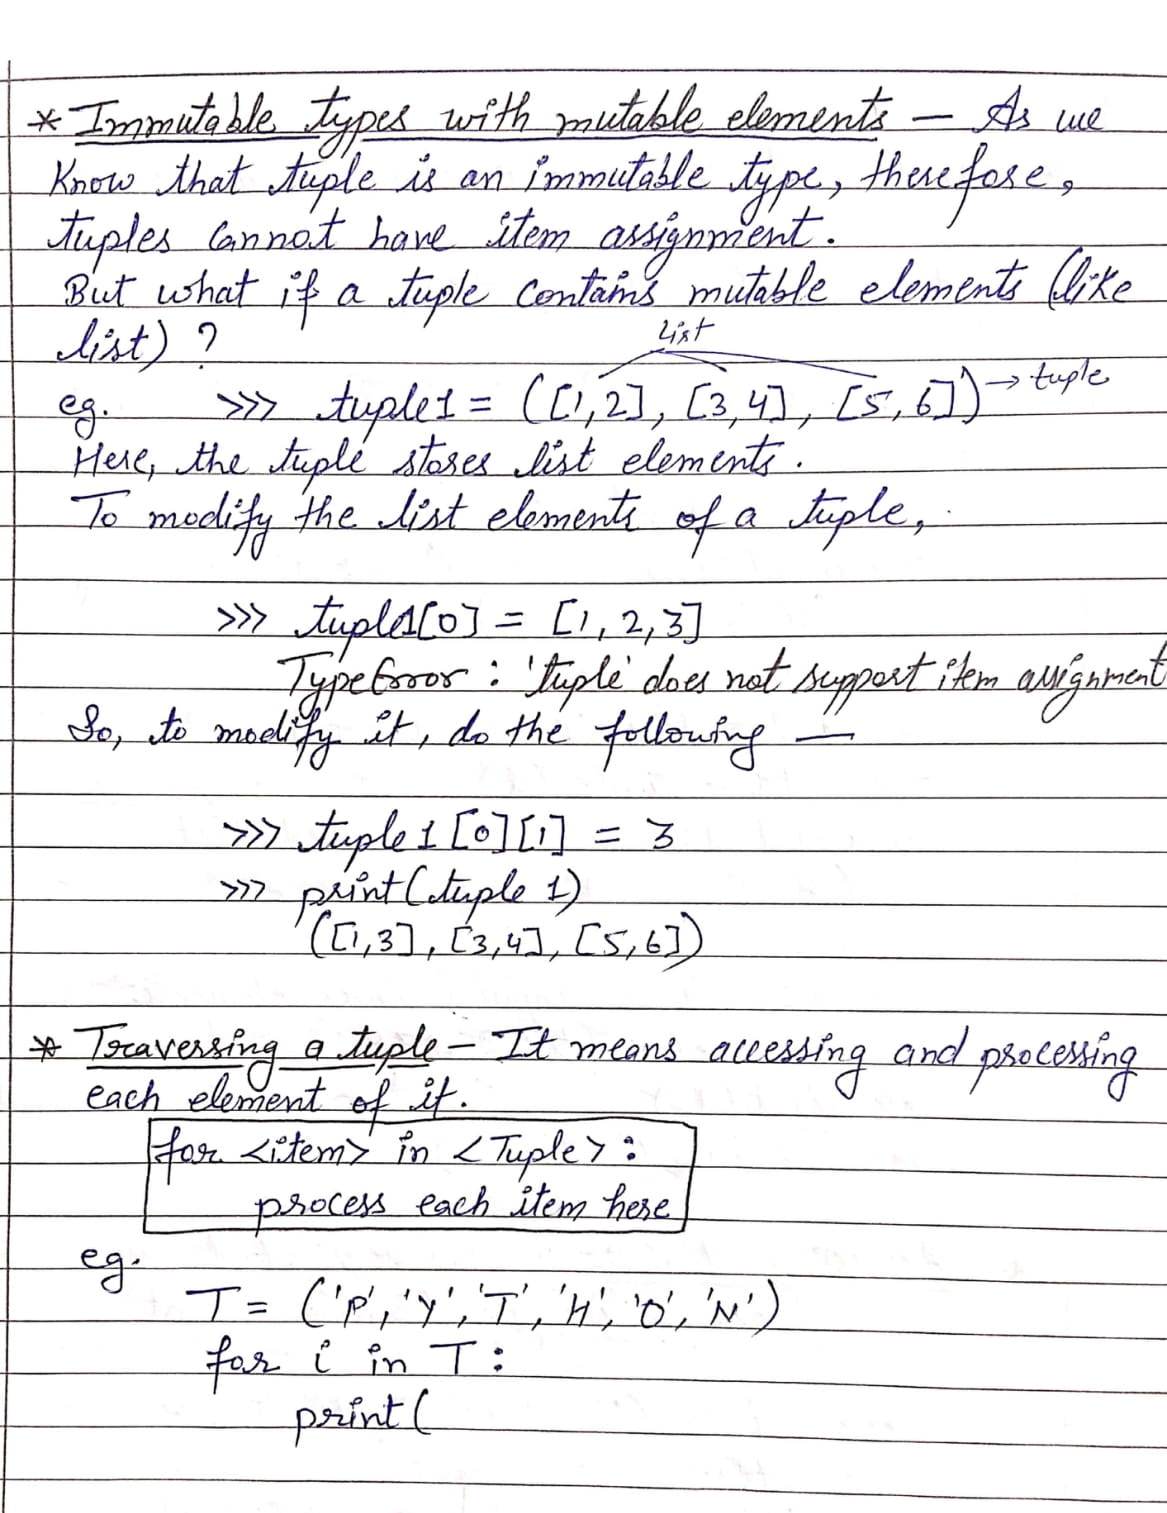 * Immutable types with mutable elements — As we
Know that tuple is an immutable type, therefore,
tuples cannot have item assignment.
But what if a tuple contains mutable elements (like
list) ?
list
eg. >>> tuple1 = ([1,2], [3,4], [5,6]) → tuple
Here, the tuple stores list elements.
To modify the list elements of a tuple,
>>> tuple1[0] = [1, 2, 3]
TypeError : 'tuple' does not support item assignment
So, to modify it, do the following —
>>> tuple1 [0][1] = 3
>>> print(tuple 1)
([1,3], [3,4], [5,6])
* Traversing a tuple – It means accessing and processing
each element of it.
for <item> in <Tuple> :
process each item here
eg.
T = ('P', 'Y', 'T', 'H', 'O', 'N')
for i in T :
print (